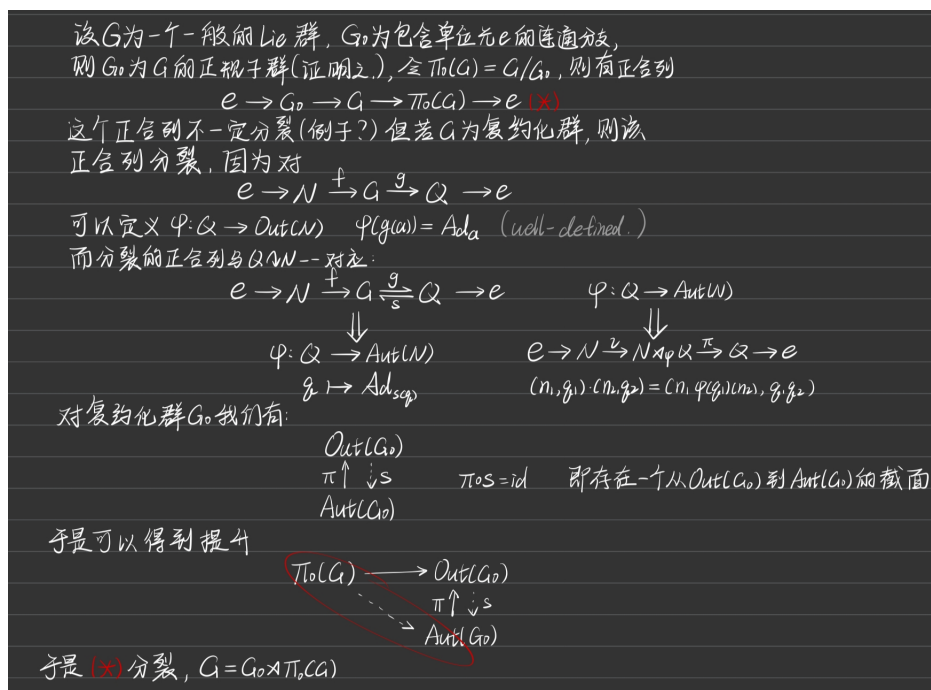 设G为一个一般的Lie群, G₀为包含单位元e的连通分支,
则G₀为G的正规子群(证明之), 令π₀(G) = G/G₀, 则有正合列
e → G₀ → G → π₀(G) → e (*)
这个正合列不一定分裂(例子?) 但若G为复约化群, 则该
正合列分裂, 因为对
e → N →f G →g Q → e
可以定义 φ: Q → Out(N) φ(g(a)) = Ad_a (well-defined.)
而分裂的正合列与Q↷N一一对应:
e → N →f G ⇄ Q → e g s φ: Q → Aut(N)
⇓ ⇓
φ: Q → Aut(N) e → N →i N⋊φ Q →π Q → e
q ↦ Ad_s(q) (n₁,q₁)·(n₂,q₂) = (n₁ φ(q₁)(n₂), q₁q₂)
对复约化群G₀我们有:
Out(G₀)
π ↑ ⇣ s π∘s = id 即存在一个从Out(G₀)到Aut(G₀)的截面
Aut(G₀)
于是可以得到提升
π₀(G) → Out(G₀)
π ↑ ⇣ s
Aut(G₀)
于是 (*) 分裂, G = G₀⋊π₀(G)